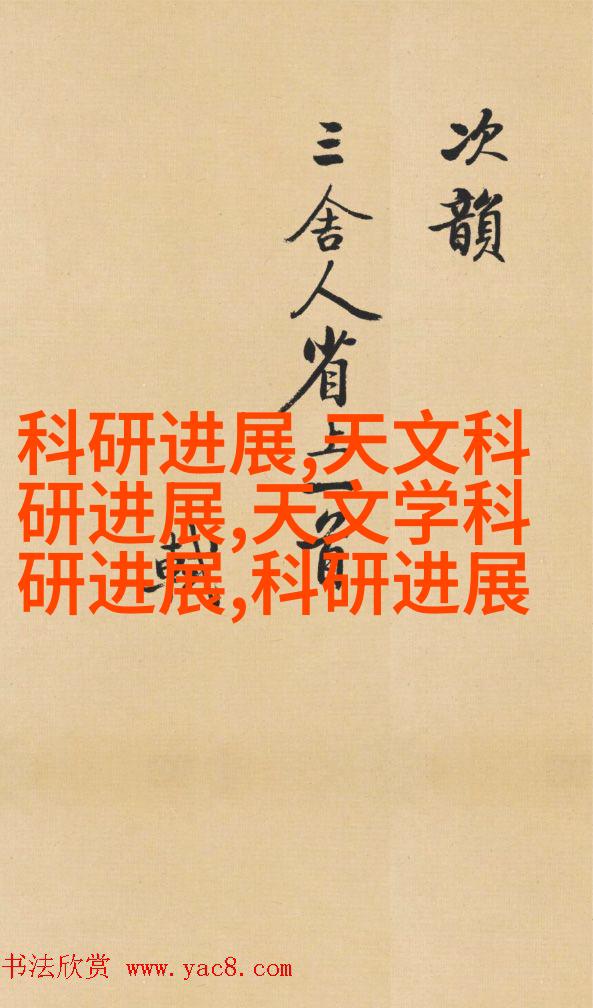 次韻
三舍人省上一首
軾
科研进展,天文科
研进展,天文学科
研进展,科研进展
书法欣赏 www.yac8.com